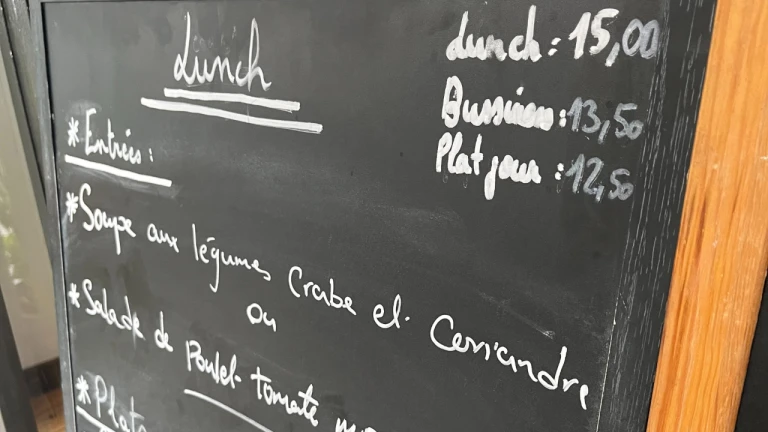 Lunch
Lunch: 15,00
Bussiness: 13,50
Plat jour: 12,50
* Entrées:
* Soupe aux légumes Crabe et Corriandre
Ou
* Salade de Poulet tomate
* Plats